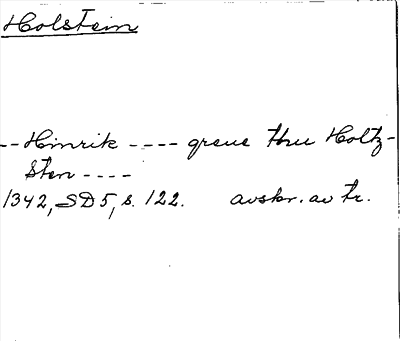 Holstein
-- Hinrik ---- greue thu Holtz-
sten ----
1342, SD5, s. 122. avskr. av tr.